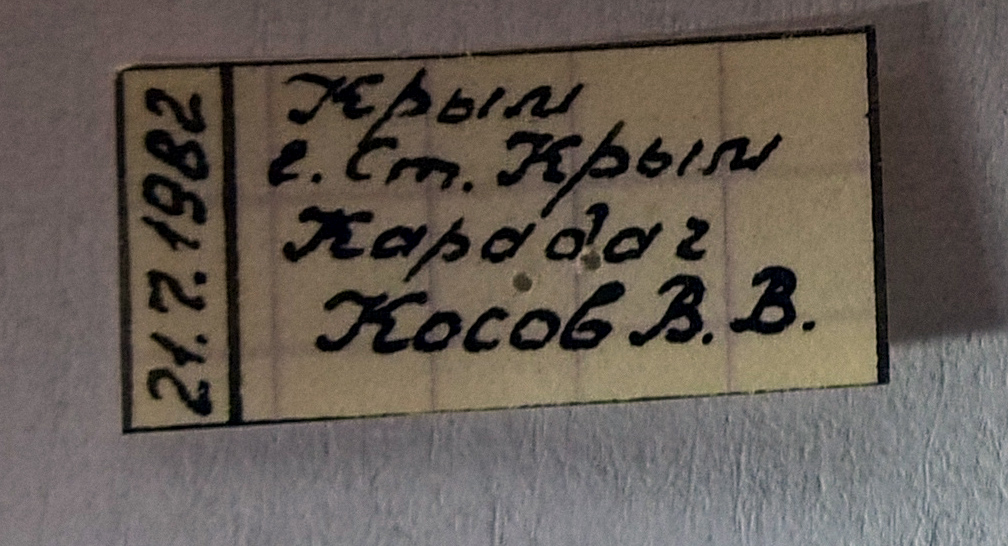 21.7.1982
Крым
г. Ст. Крым
Карадаг
Косов В. В.